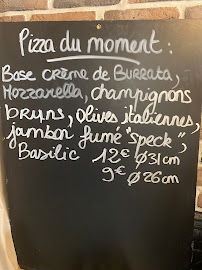 Pizza du moment :
Base crème de Burrata,
Mozzarella, champignons
bruns, olives italiennes,
jambon fumé "speck",
Basilic 12€ Ø31cm
9€ Ø26cm